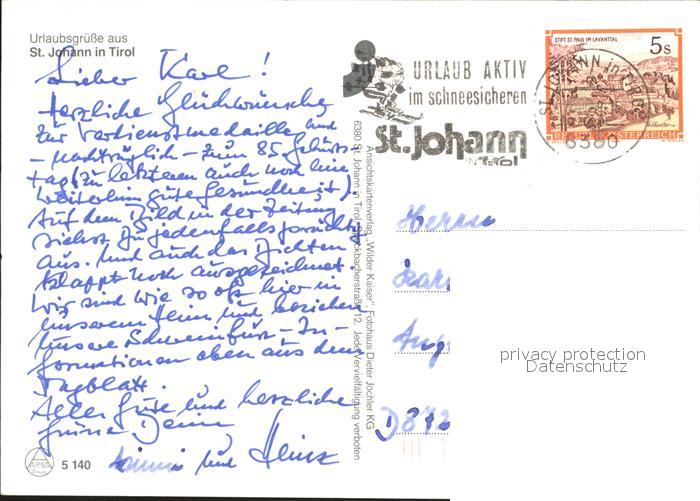 Urlaubsgrüße aus
St. Johann in Tirol
Lieber Karl!
Herzliche Glückwünsche
zur Verdienstmedaille und
- nachträglich - zum 85. Geburts-
tag (zu letzterem auch noch eine
weiterhin gute Gesundheit).
Auf dem Bild in der Zeitung
siehst Du jedenfalls prächtig
aus. Und auch das Dichten
klappt noch ausgezeichnet.
Wir sind wie so oft hier in
unserem Heim und beziehen
unsere Schweinfurt-In-
formationen eben aus dem
Tagblatt.
Alles Gute und herzliche
Grüsse Deine
und Heinz
ALPINA
5 140
Ansichtskartenverlag „Wilder Kaiser", Fotohaus Dieter Jöchler KG
6380 St. Johann in Tirol, Speckbacherstraße 12. Jede Vervielfältigung verboten
URLAUB AKTIV
im schneesicheren
St. Johann
IN TIROL
ST. JOHANN in TIROL
6380
STIFT ST. PAUL IM LAVANTTAL
5 S
REPUBLIK ÖSTERREICH
Herrn
Karl
Aug
D872
privacy protection
Datenschutz